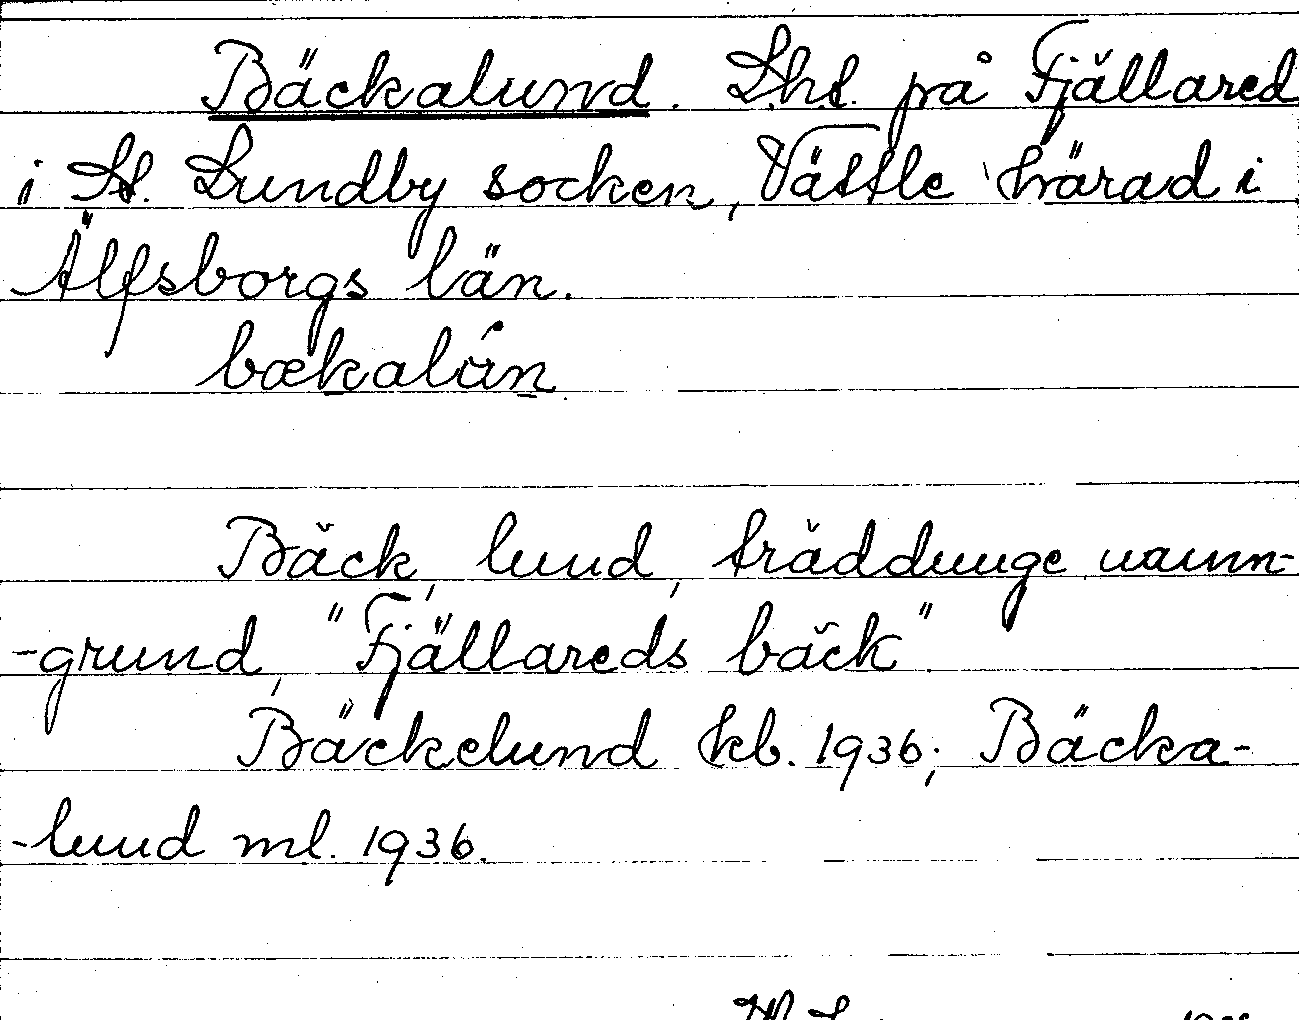 Bäckalund. Lht. på Fjällared
i St. Lundby socken, Vättle härad i
Älfsborgs län.
bækalún
Bäck, lund, träddunge, namn-
-grund, "Fjällareds bäck".
Bäckelund kb. 1936; Bäcka-
-lund ml. 1936.